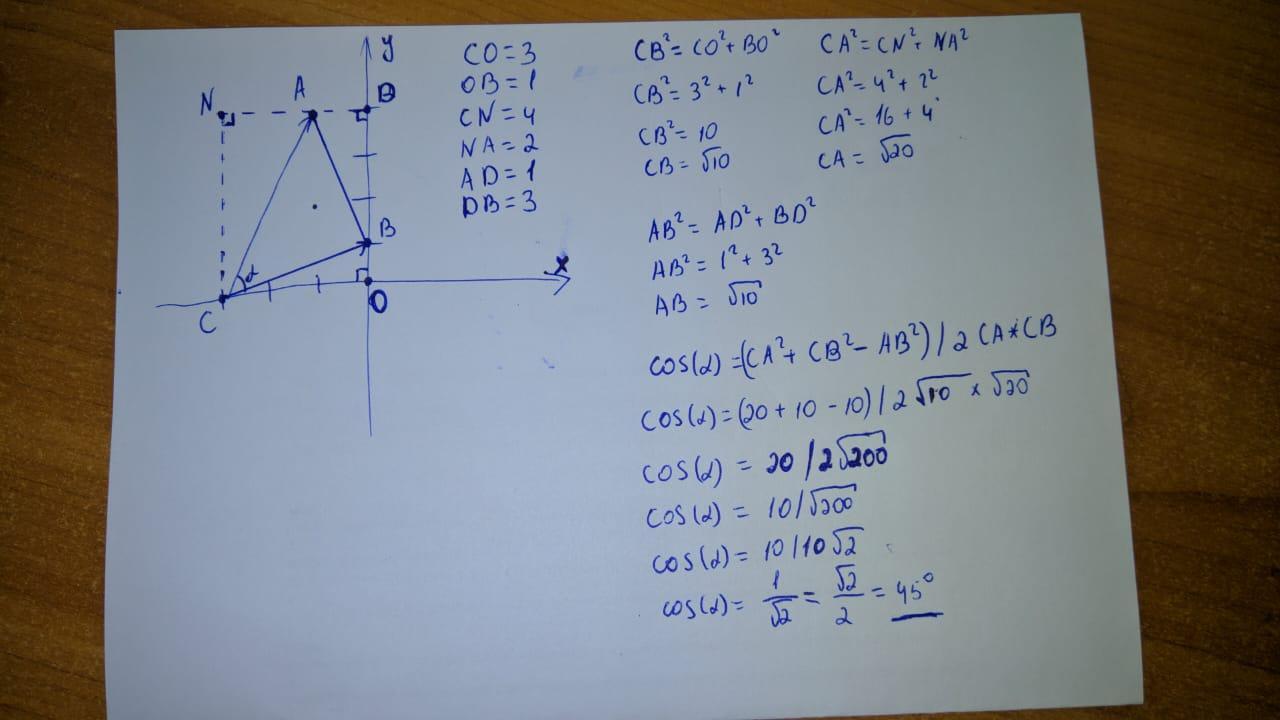 y
N A D
B
x
C α O
CO = 3
OB = 1
CN = 4
NA = 2
AD = 1
DB = 3
CB² = CO² + BO²
CB² = 3² + 1²
CB² = 10
CB = √10
CA² = CN² + NA²
CA² = 4² + 2²
CA² = 16 + 4
CA = √20
AB² = AD² + BD²
AB² = 1² + 3²
AB = √10
cos(α) = (CA² + CB² - AB²) / 2 CA * CB
cos(α) = (20 + 10 - 10) / 2√10 × √20
cos(α) = 20 / 2√200
cos(α) = 10 / √200
cos(α) = 10 / 10√2
cos(α) = 1/√2 = √2/2 = 45°